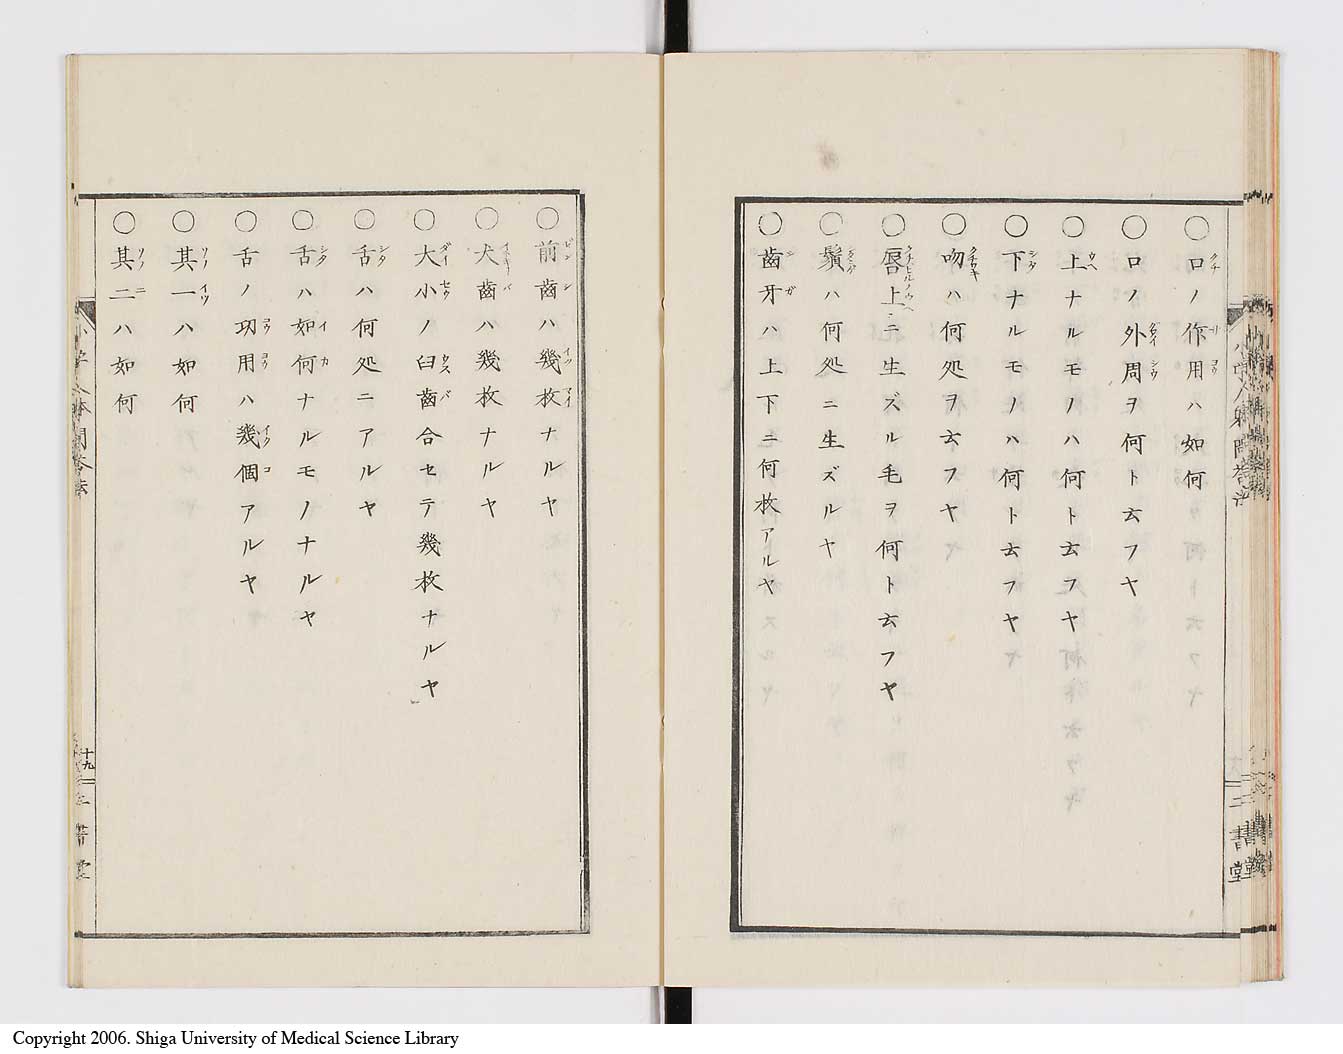 〇口ノ作用ハ如何
〇口ノ外周ヲ何ト云フヤ
〇上ナルモノハ何ト云フヤ
〇下ナルモノハ何ト云フヤ
〇吻ハ何処ヲ云フヤ
〇唇上ニ生ズル毛ヲ何ト云フヤ
〇鬚ハ何処ニ生ズルヤ
〇歯牙ハ上下ニ何枚アルヤ
〇前歯ハ幾枚ナルヤ
〇犬歯ハ幾枚ナルヤ
〇大小ノ臼歯合セテ幾枚ナルヤ
〇舌ハ何処ニアルヤ
〇舌ハ如何ナルモノナルヤ
〇舌ノ功用ハ幾個アルヤ
〇其一ハ如何
〇其二ハ如何
十九
二書堂
Copyright 2006. Shiga University of Medical Science Library